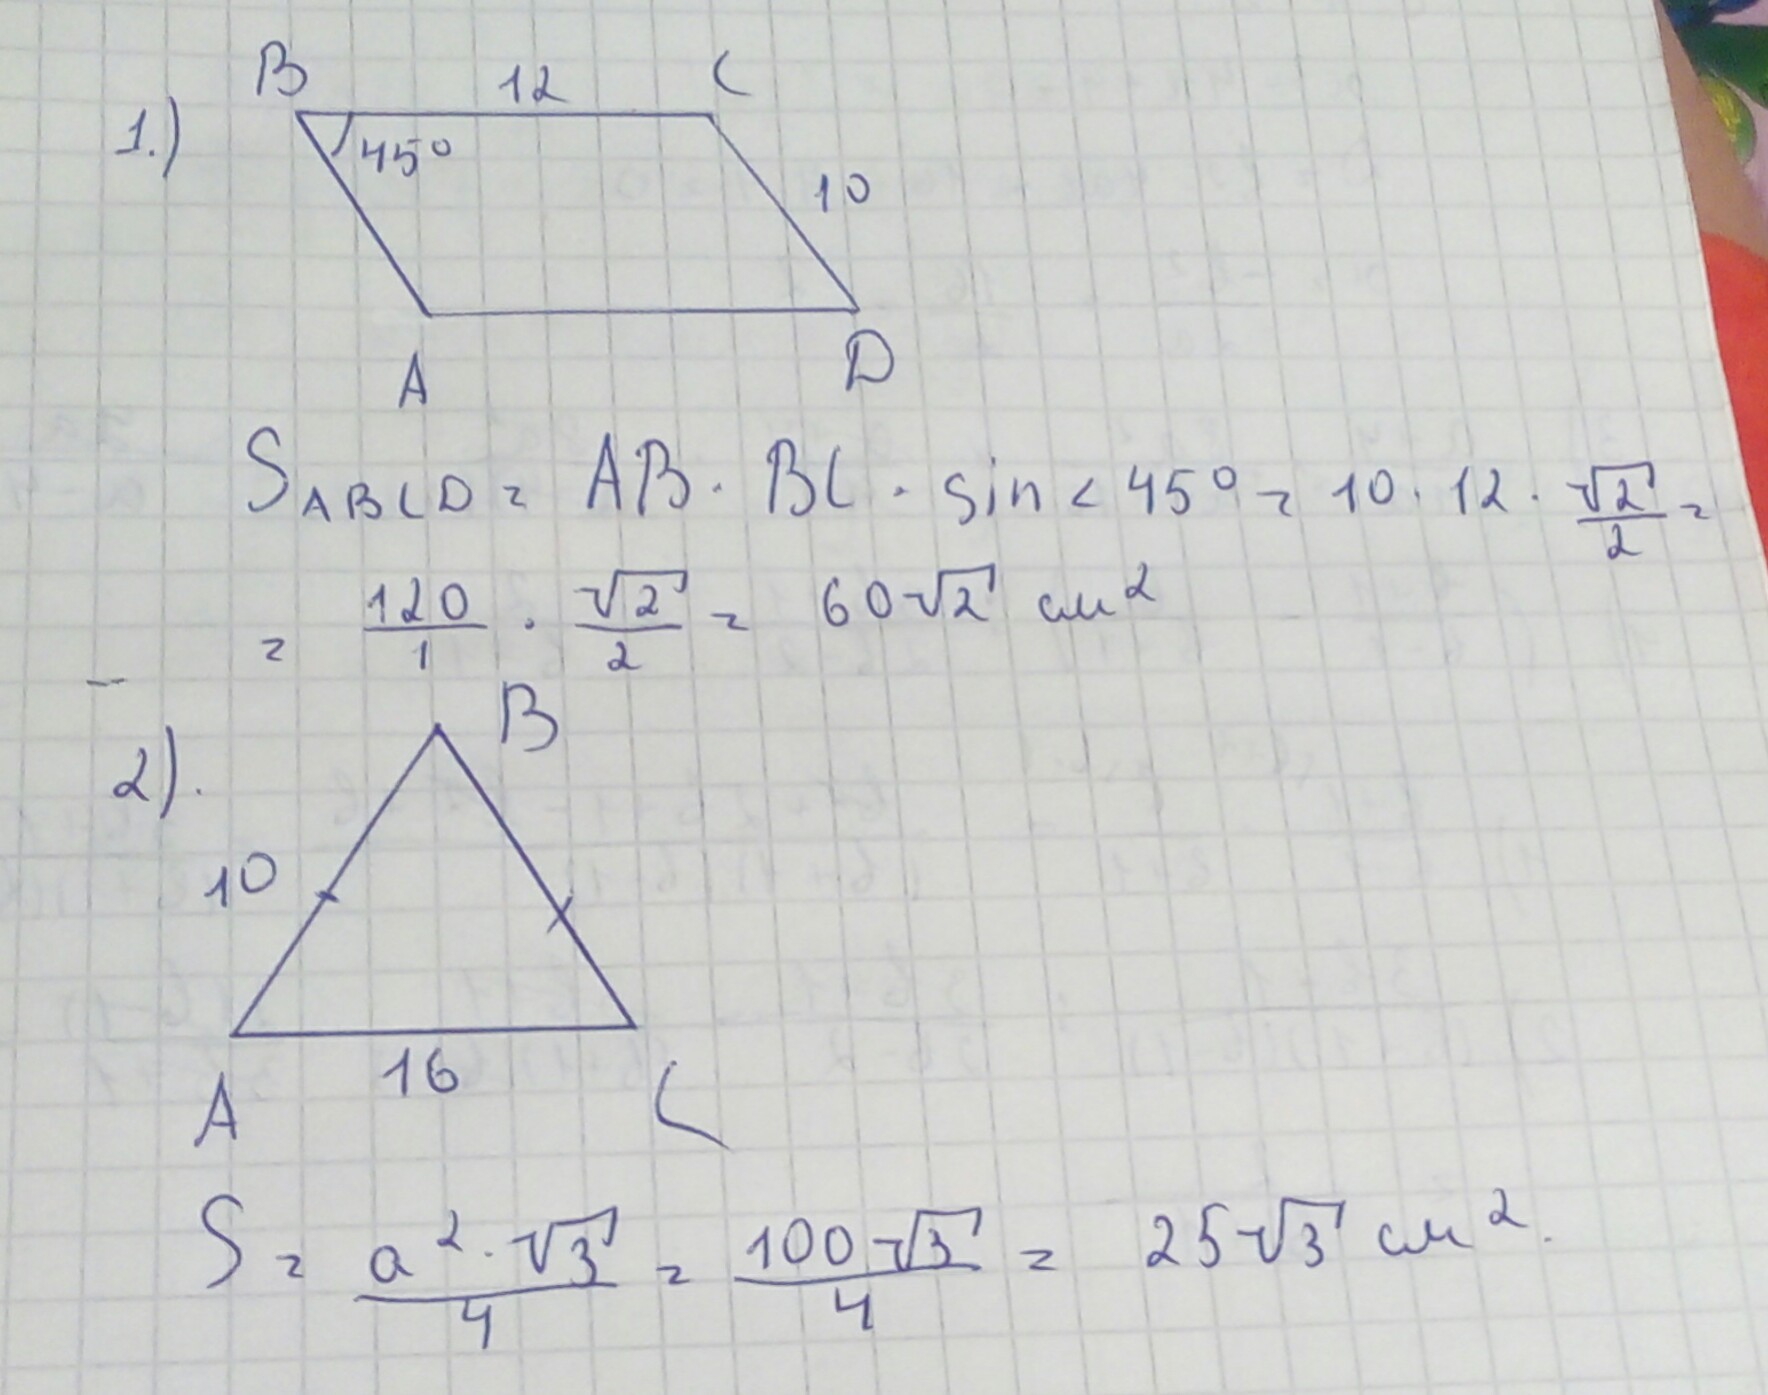 1.)
B 12 C
45°
10
A D
S ABCD = AB · BC · sin < 45° = 10 · 12 · √2/2 =
= 120/1 · √2/2 = 60√2 см²
2).
B
10
16
A C
S = a² · √3/4 = 100√3/4 = 25√3 см².